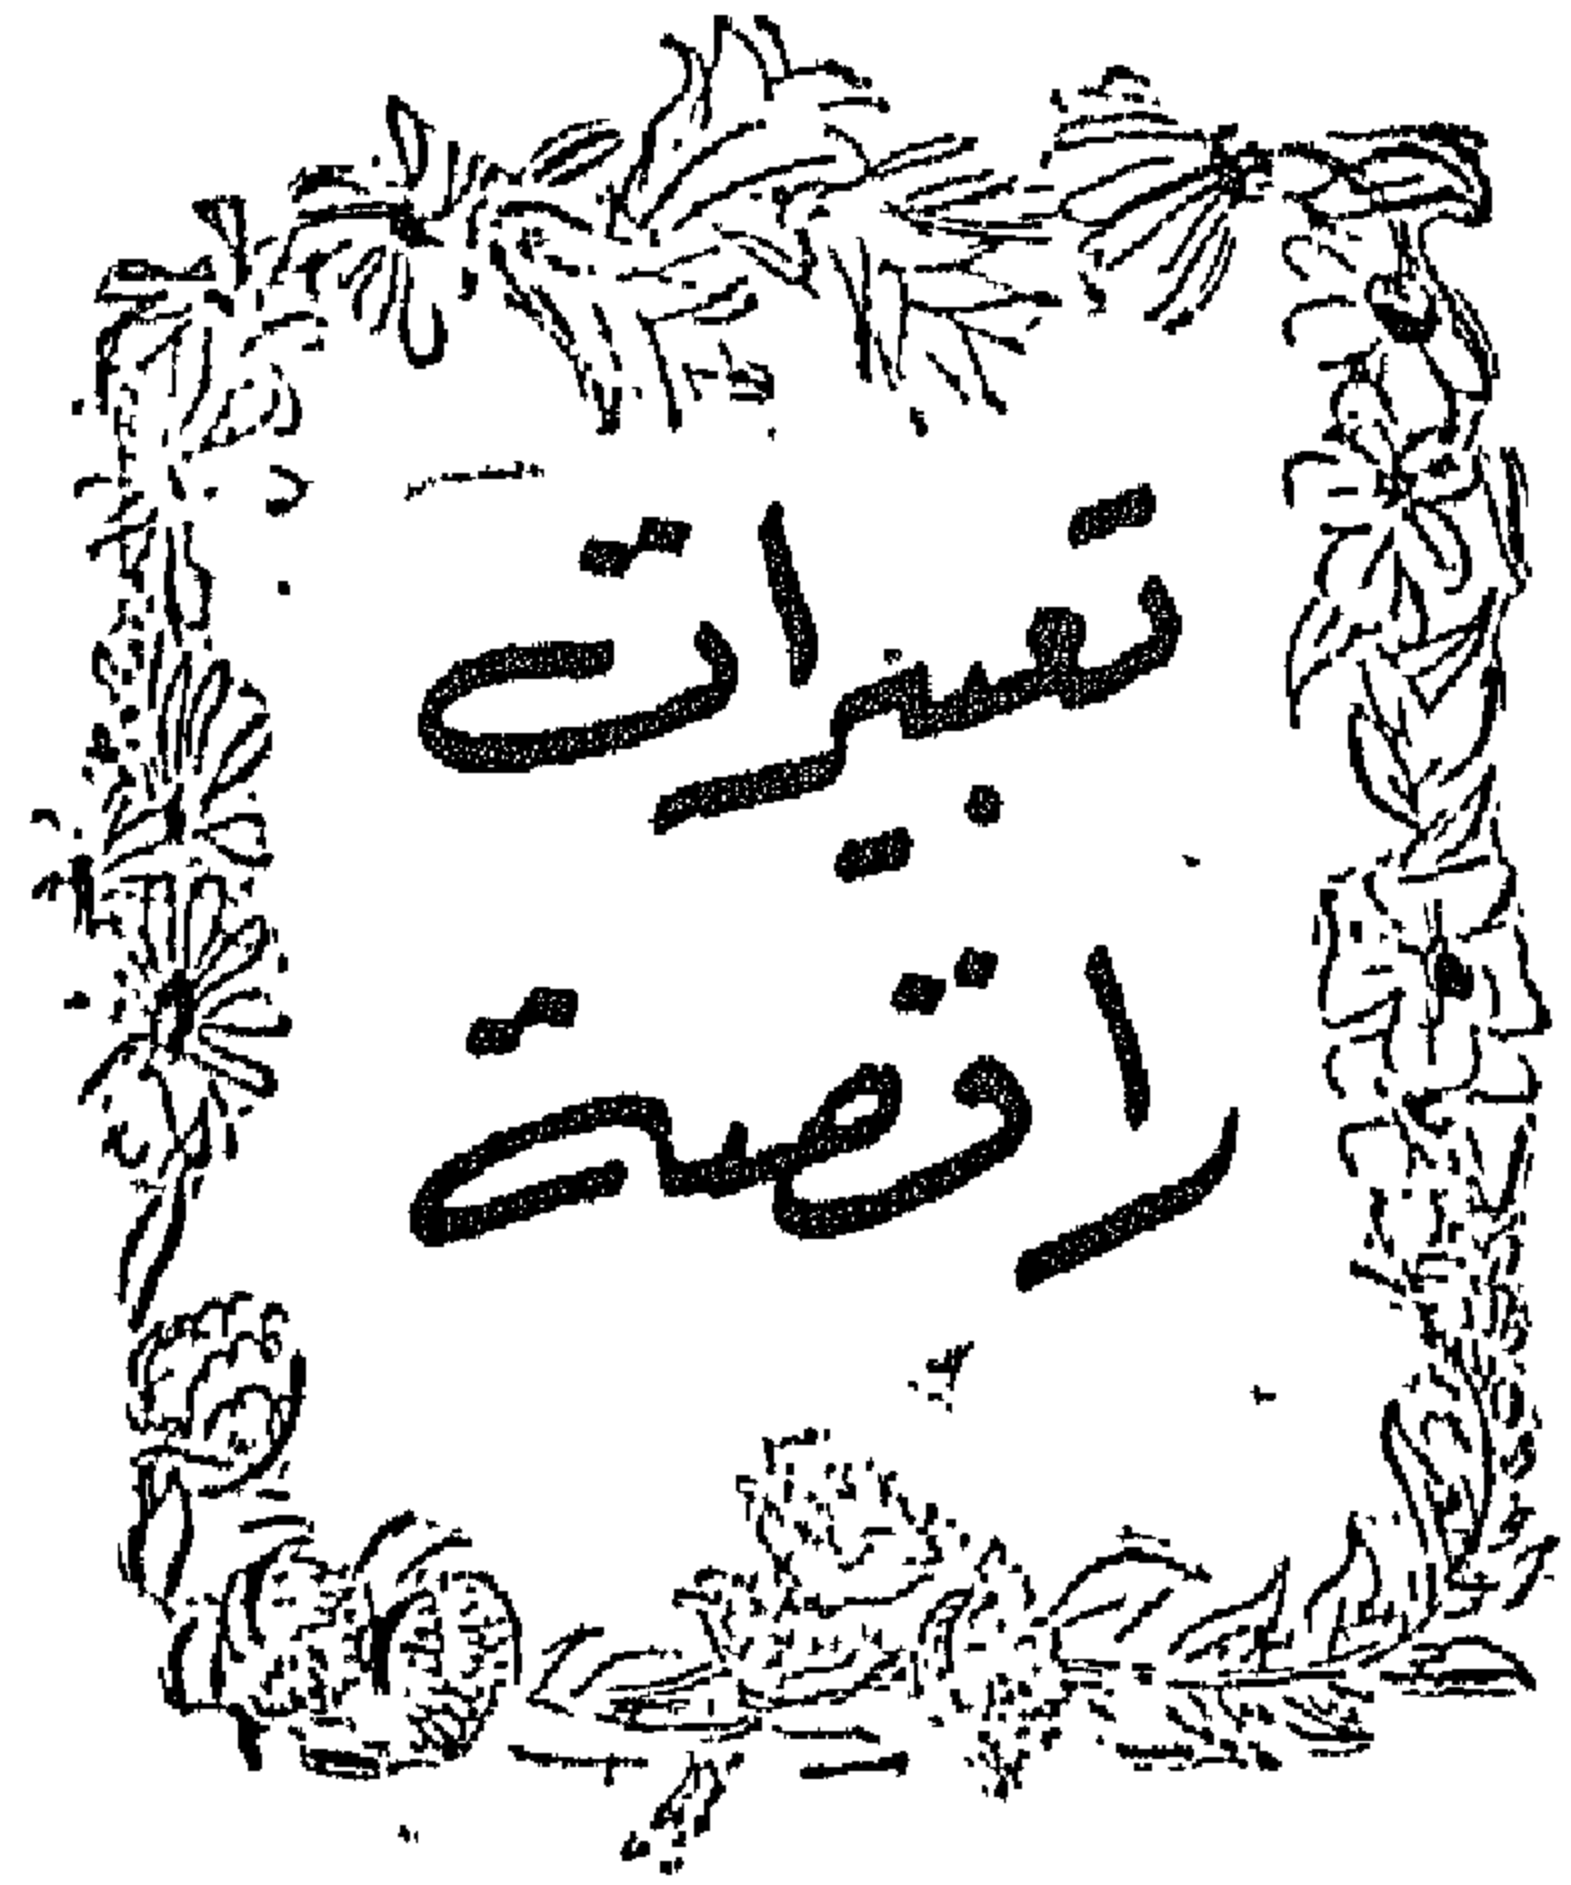 تعبيرات
راقصة